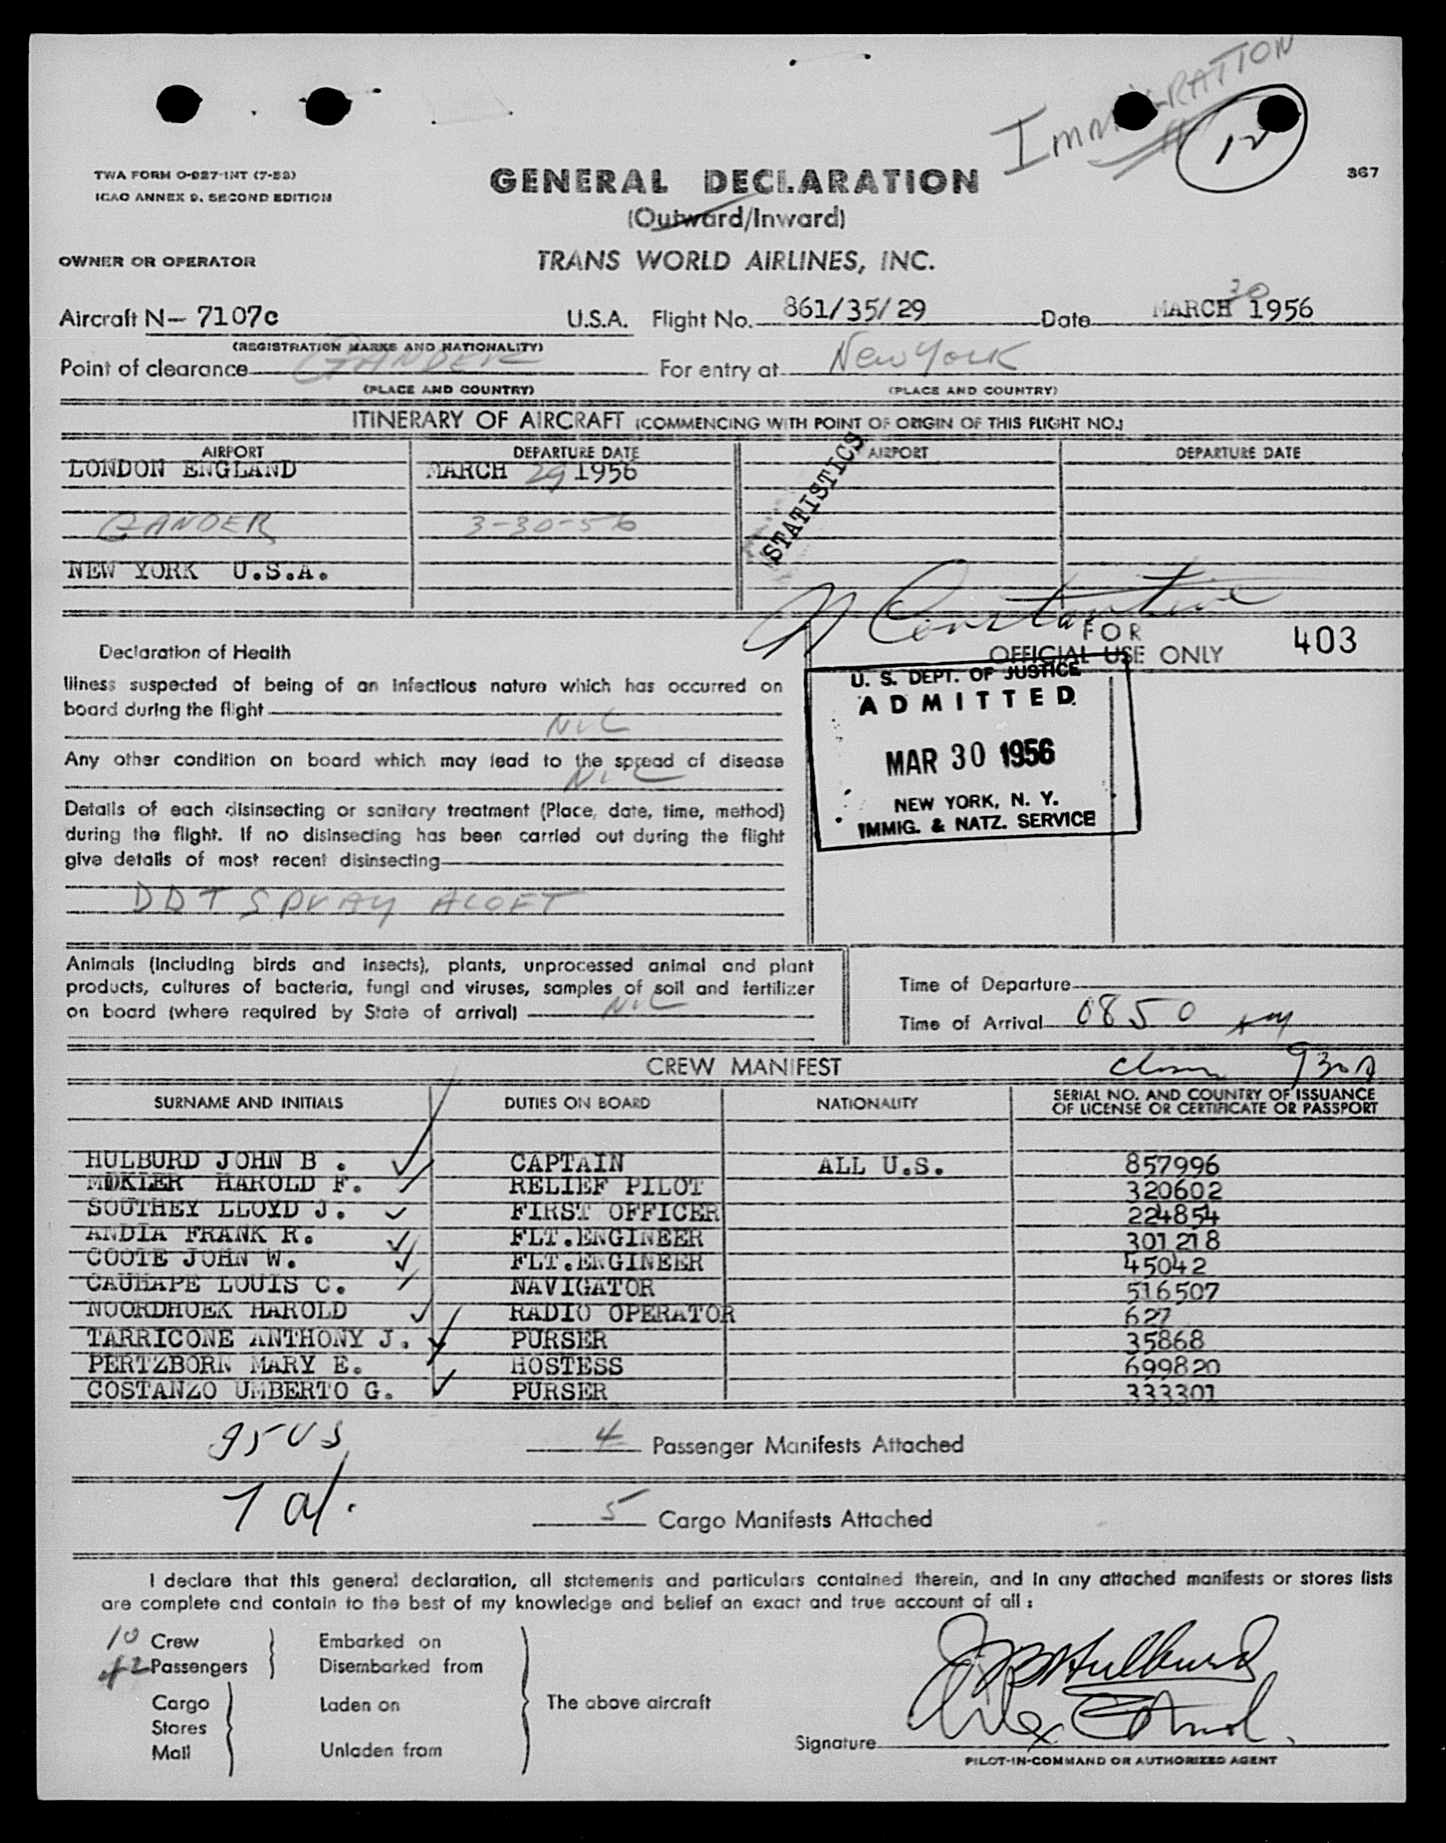 IMMIGRATION
12
TWA FORM O-927-INT (7-52)
ICAO ANNEX 9, SECOND EDITION
GENERAL DECLARATION
367
(Outward/Inward)
OWNER OR OPERATOR
TRANS WORLD AIRLINES, INC.
Aircraft N- 7107c U.S.A. Flight No. 861/35/29 Date MARCH 30 1956
(REGISTRATION MARKS AND NATIONALITY)
Point of clearance GANDER For entry at New York
(PLACE AND COUNTRY) (PLACE AND COUNTRY)
ITINERARY OF AIRCRAFT (COMMENCING WITH POINT OF ORIGIN OF THIS FLIGHT NO.)
AIRPORT DEPARTURE DATE AIRPORT DEPARTURE DATE
LONDON ENGLAND MARCH 29 1956
STATISTICS
GANDER 3-30-56
NEW YORK U.S.A.
Constantine
FOR
OFFICIAL USE ONLY 403
Declaration of Health
Illness suspected of being of an infectious nature which has occurred on
board during the flight
NIL
Any other condition on board which may lead to the spread of disease
NIL
Details of each disinsecting or sanitary treatment (Place, date, time, method)
during the flight. If no disinsecting has been carried out during the flight
give details of most recent disinsecting
DDT SPRAY ALOFT
U. S. DEPT. OF JUSTICE
ADMITTED
MAR 30 1956
NEW YORK, N. Y.
IMMIG. & NATZ. SERVICE
Animals (including birds and insects), plants, unprocessed animal and plant
products, cultures of bacteria, fungi and viruses, samples of soil and fertilizer
on board (where required by State of arrival) NIL
Time of Departure
Time of Arrival 0850 AM
CREW MANIFEST
930A
SURNAME AND INITIALS DUTIES ON BOARD NATIONALITY SERIAL NO. AND COUNTRY OF ISSUANCE
OF LICENSE OR CERTIFICATE OR PASSPORT
HULBURD JOHN B . CAPTAIN ALL U.S. 857996
MOKLER HAROLD F. RELIEF PILOT 320602
SOUTHEY LLOYD J. FIRST OFFICER 224854
ANDIA FRANK R. FLT.ENGINEER 301218
COOTE JOHN W. FLT.ENGINEER 45042
CAUHAPE LOUIS C. NAVIGATOR 516507
NOORDHOEK HAROLD RADIO OPERATOR 627
TARRICONE ANTHONY J. PURSER 35868
PERTZBORN MARY E. HOSTESS 699820
COSTANZO UMBERTO G. PURSER 333301
4 Passenger Manifests Attached
5 Cargo Manifests Attached
I declare that this general declaration, all statements and particulars contained therein, and in any attached manifests or stores lists
are complete and contain to the best of my knowledge and belief an exact and true account of all :
10 Crew Embarked on
42 Passengers Disembarked from
Cargo Laden on The above aircraft
Stores
Mail Unladen from
JB Hulburd
Signature
PILOT-IN-COMMAND OR AUTHORIZED AGENT